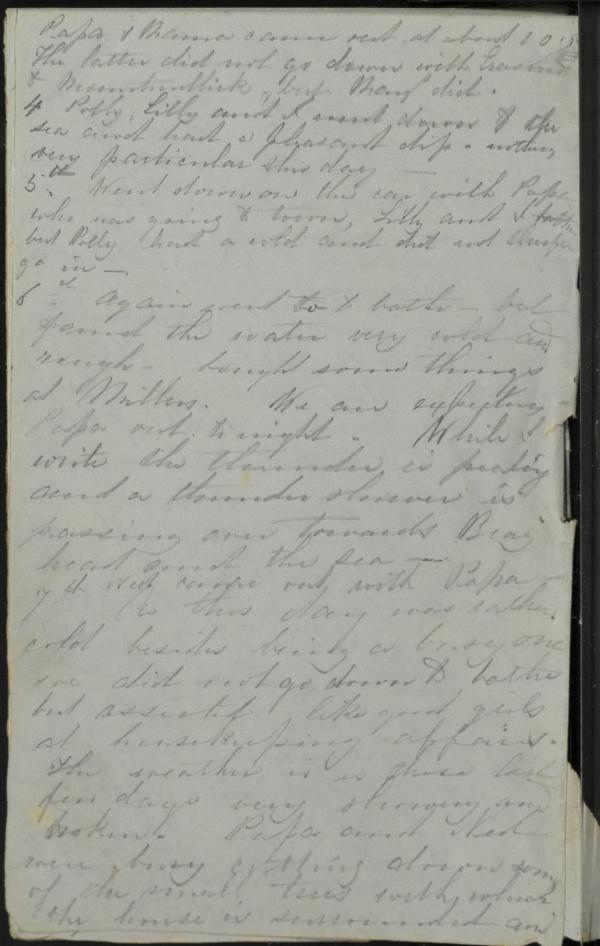 Papa & Mama came out at about 10
The latter did not go down with Erasmus
& Mountmellick, but Mary did.
4 Polly, Lilly and I went down to the
sea and had a pleasant dip - nothing
very particular this day —
5th Went down on the car with Papa
who was going to town, Lilly and I bathed
but Polly had a cold and did not
go in —
6th Again went to bathe - but
found the water very cold and
rough - bought some things
at Millers. We are expecting
Papa out to night. While I
write the thunder is pealing
and a thunder shower is
passing over towards Bray
head and the sea —
7th Ned came out with Papa —
As this day was rather
cold besides being a busy one
we did not go down to bathe
but assisted like good girls
at housekeeping affairs.
The weather is is these last
few days very showery and
broken. Papa and Ned
were busy cutting down some
of the small trees with which
the house is surrounded and